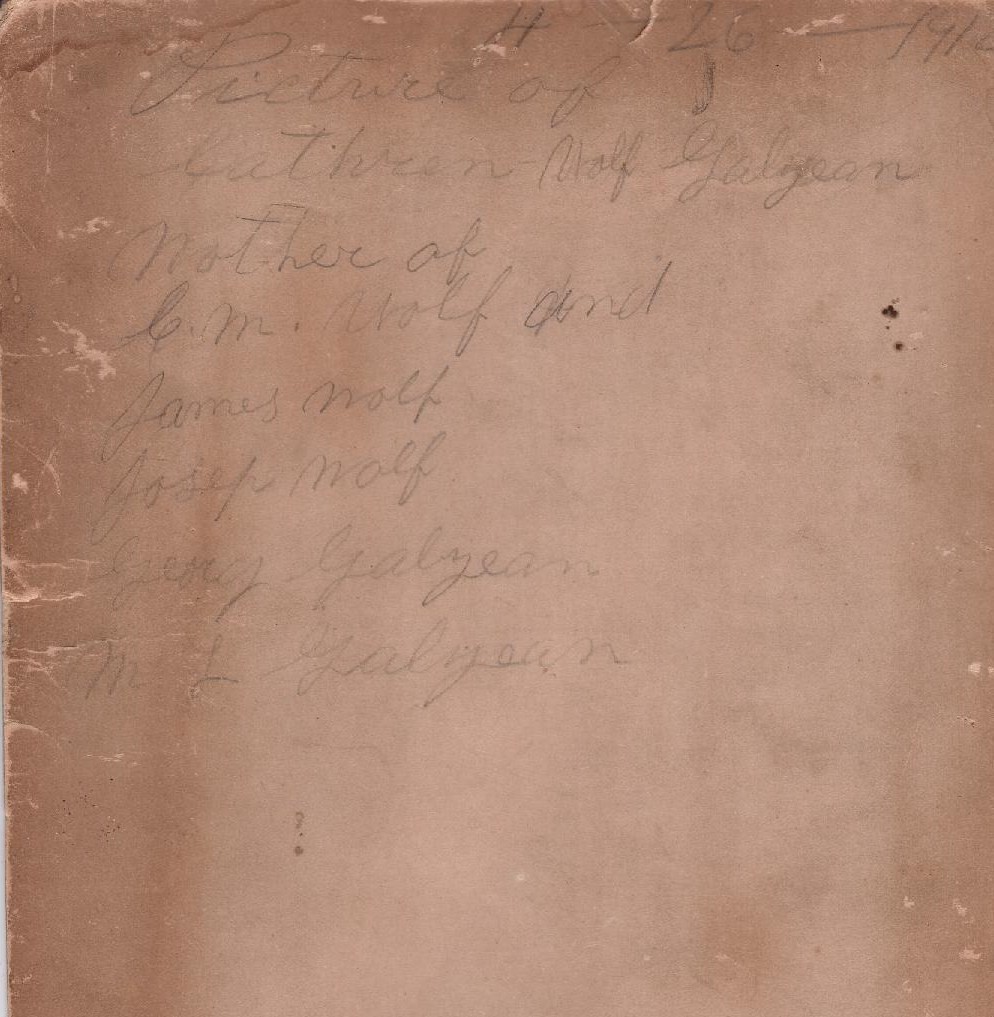 4 - 26 - 191
Picture of
Cathren Wolf Galyean
Mother of
C. M. Wolf and
James Wolf
Josep Wolf
Georg Galyean
M L Galyean